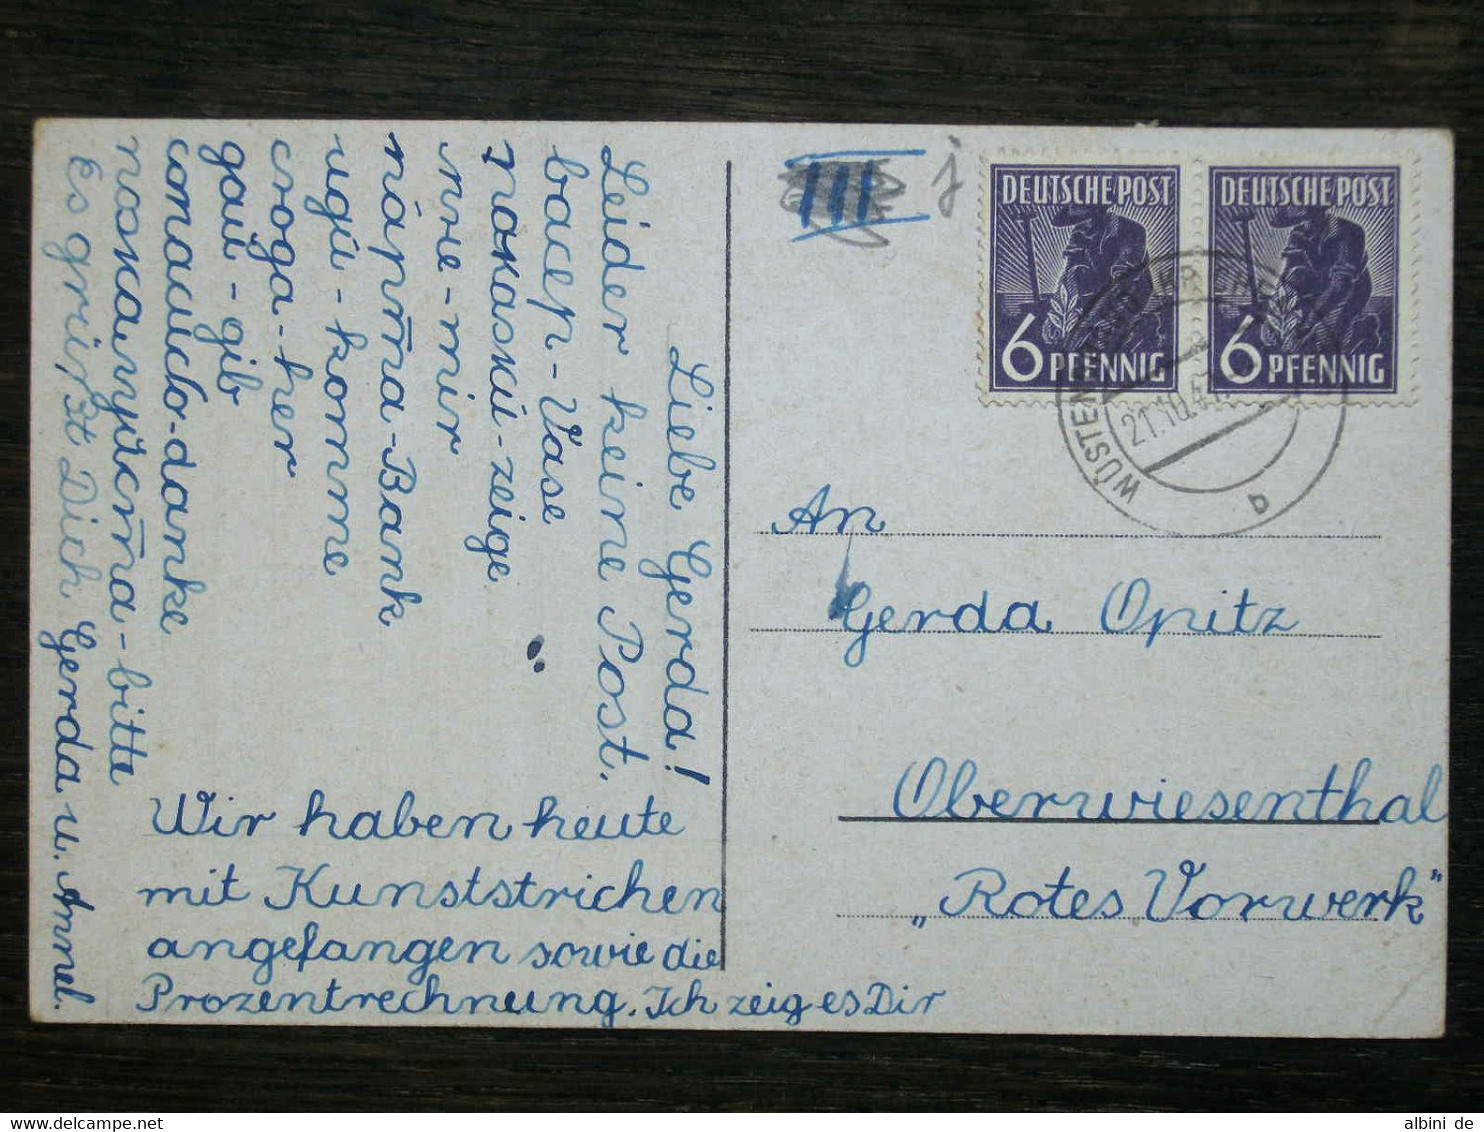 Liebe Gerda!
Leider keine Post.
васер - Vase
покажи́ - zeige
мне - mir
па́рта - Bank
иди́ - komme
сюда - her
дай - gib
спаси́бо - danke
пожалуйста - bitte
Es grüßt Dich Gerda u. Annel.
Wir haben heute
mit Kunststrichen
angefangen sowie die
Prozentrechnung. Ich zeig es Dir
III
j
DEUTSCHE POST
6 PFENNIG
DEUTSCHE POST
6 PFENNIG
WÜSTEN
21.10.4
b
An
Gerda Opitz
Oberwiesenthal
„Rotes Vorwerk"
albini de